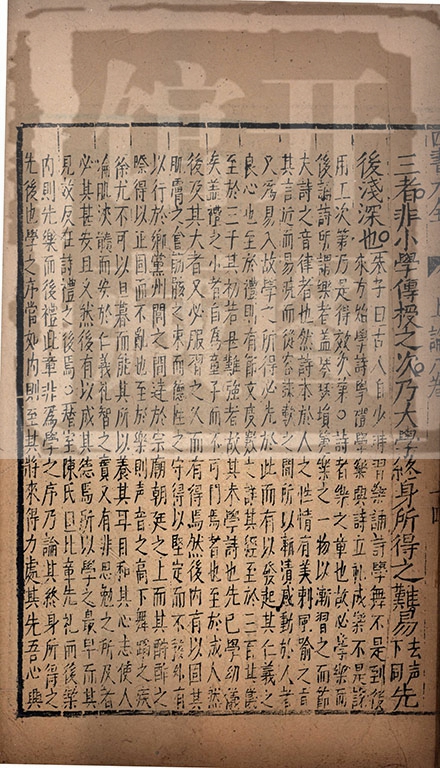 三者非小學傳授之次乃大學終身所得之難易去聲下同先
後淺深也朱子曰古人自少時習樂誦詩學舞不是到後
來方始學詩學禮學樂興詩立禮成樂不是說
用工次第乃是得效次第○詩者樂之章也故必學樂而
後誦詩所謂樂者蓋琴瑟塤篪樂之一物以漸習之而節
夫詩之音律者也然詩本於人之性情有美刺風諭之旨
其言近而易曉而從容詠歎之間所以漸漬感動於人者
又為易入故學之所得必先於此而有以發起其仁義之
良心也至於禮則有節文度數之詳其經至於三百其儀
至於三千其初若甚難強者故其未學詩也先已學幼儀
矣蓋禮之小者自為童子而不可闕焉者也至於成人然
後及其大者又必服習之久而有得焉然後內有以固其
肌膚之會筋骸之束而德性之守得以堅定而不移外有
以行於鄉黨州閭之間達於宗廟朝廷之上而其酬酢之
際得以正固而不亂也至於樂則聲音之高下舞蹈之疾
徐尤不可以旦暮而能其所以養其耳目和其心志使人
淪肌浹髓而安於仁義礼智之實又有非思勉之所及者
必其甚安且久然後有以成其德焉所以學之最早而其
見效反在詩禮之後焉○潛室陳氏曰此章先礼而後樂
內則先樂而後禮章非為學之序乃論其終身所得之
先後也學之序當如內則至其將來得力處其先吾心與